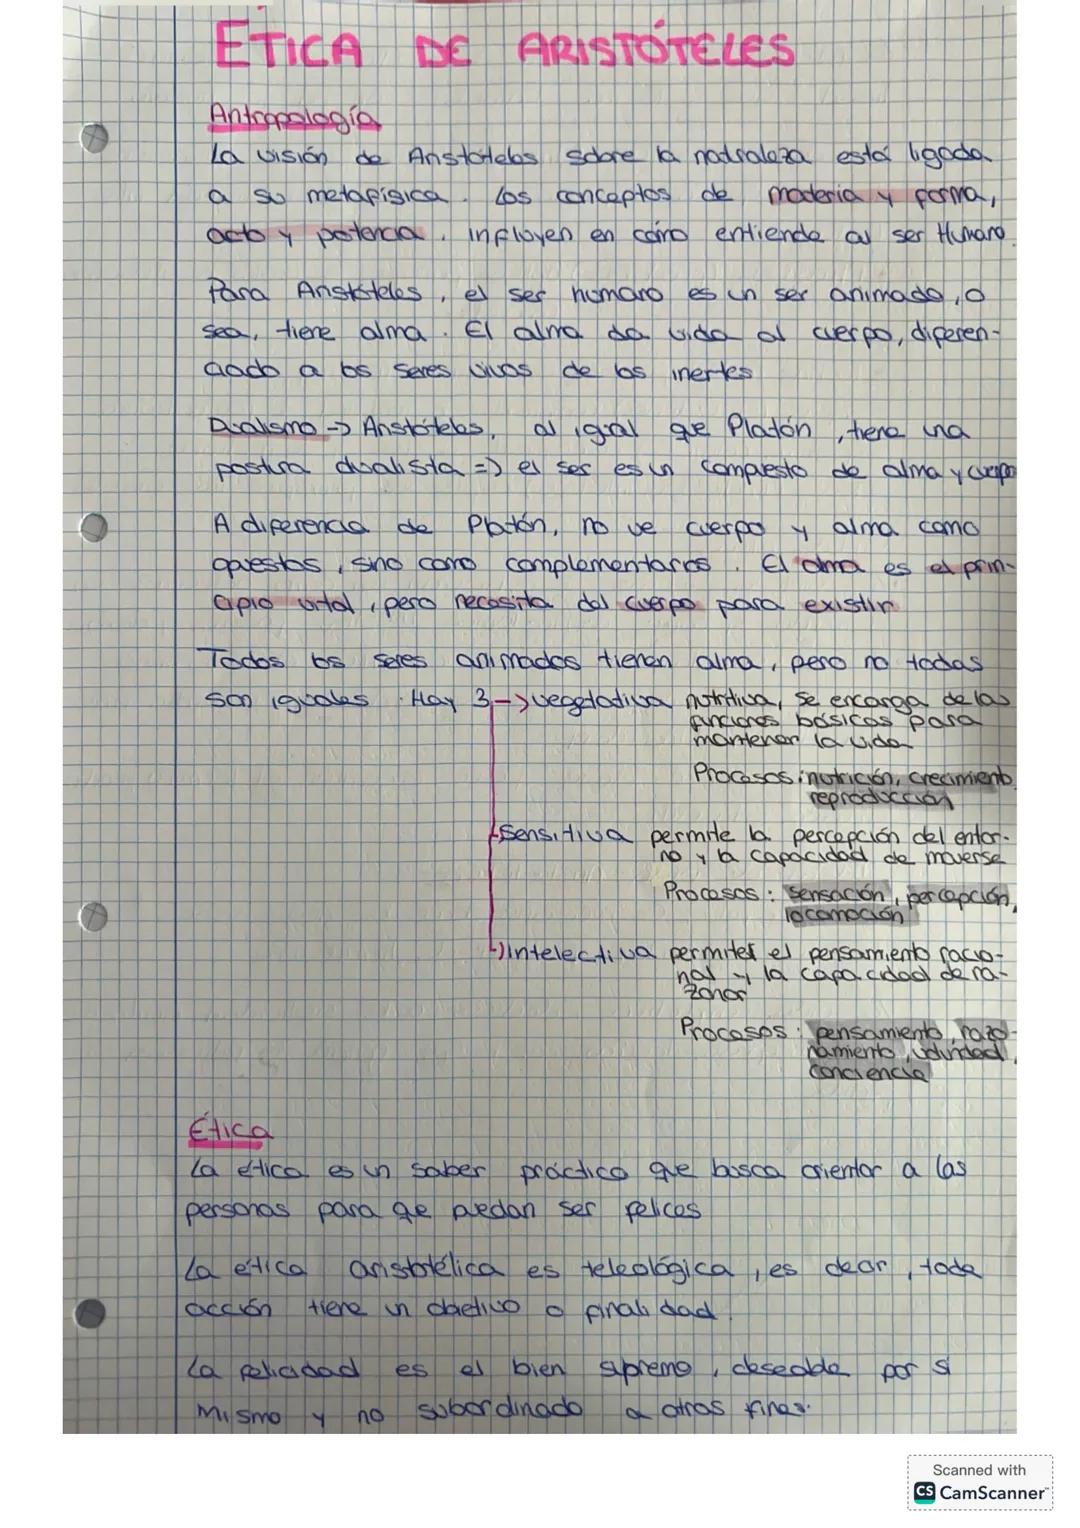 ETICA DE ARISTÓTELES
Antropología
La visión de Aristóteles sobre la naturaleza está ligada
a su metafísica. Los conceptos de materia y forma,
acto y potencia, influyen en cómo entiende al ser Humano.
Para Aristóteles, el ser humano es un ser animado, o
sea, tiene alma. El alma da vida al cuerpo, diferen-
ciado a los seres vivos de los inertes
Dualismo -> Aristóteles, al igual que Platón, tiene una
postura dualista => el ser es un compuesto de alma y cuerpo
A diferencia de Platón, no ve cuerpo y alma como
opuestos, sino como complementarios. El alma es el prin-
cipio vital, pero necesita del cuerpo para existir
Todos los seres animados tienen alma, pero no todas
son iguales. Hay 3 -> vegetativa nutritiva, se encarga de las
funciones básicas para
mantener la vida
Procesos: nutrición, crecimiento,
reproducción
Sensitiva permite la percepción del entor-
no y la capacidad de moverse
Procesos: sensación, percepción,
locomoción
Intelectiva permites el pensamiento racio-
nal y la capacidad de ra-
zonar
Procesos: pensamiento, razo-
namiento, voluntad,
conciencia
Ética
La ética es un saber práctico que busca orientar a las
personas para que puedan ser felices
La ética aristotélica es teleológica, es decir, toda
acción tiene un objetivo o finalidad.
La felicidad es el bien supremo, deseable por sí
mismo y no subordinado a otros fines.
Scanned with
CS CamScanner